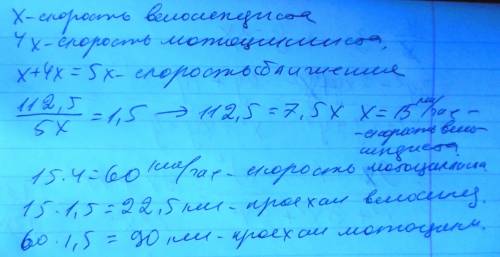 x-скорость велосипедиста
4x-скорость мотоциклиста.
x+4x=5x-скорость сближения
112,5/5x = 1,5 → 112,5=7,5x x=15 км/час -
-скорость вело-
сипедиста
15·4=60 км/час-скорость мотоциклиста
15·1,5=22,5 км-проехал велосипед.
60·1,5=90 км-проехал мотоцикл.